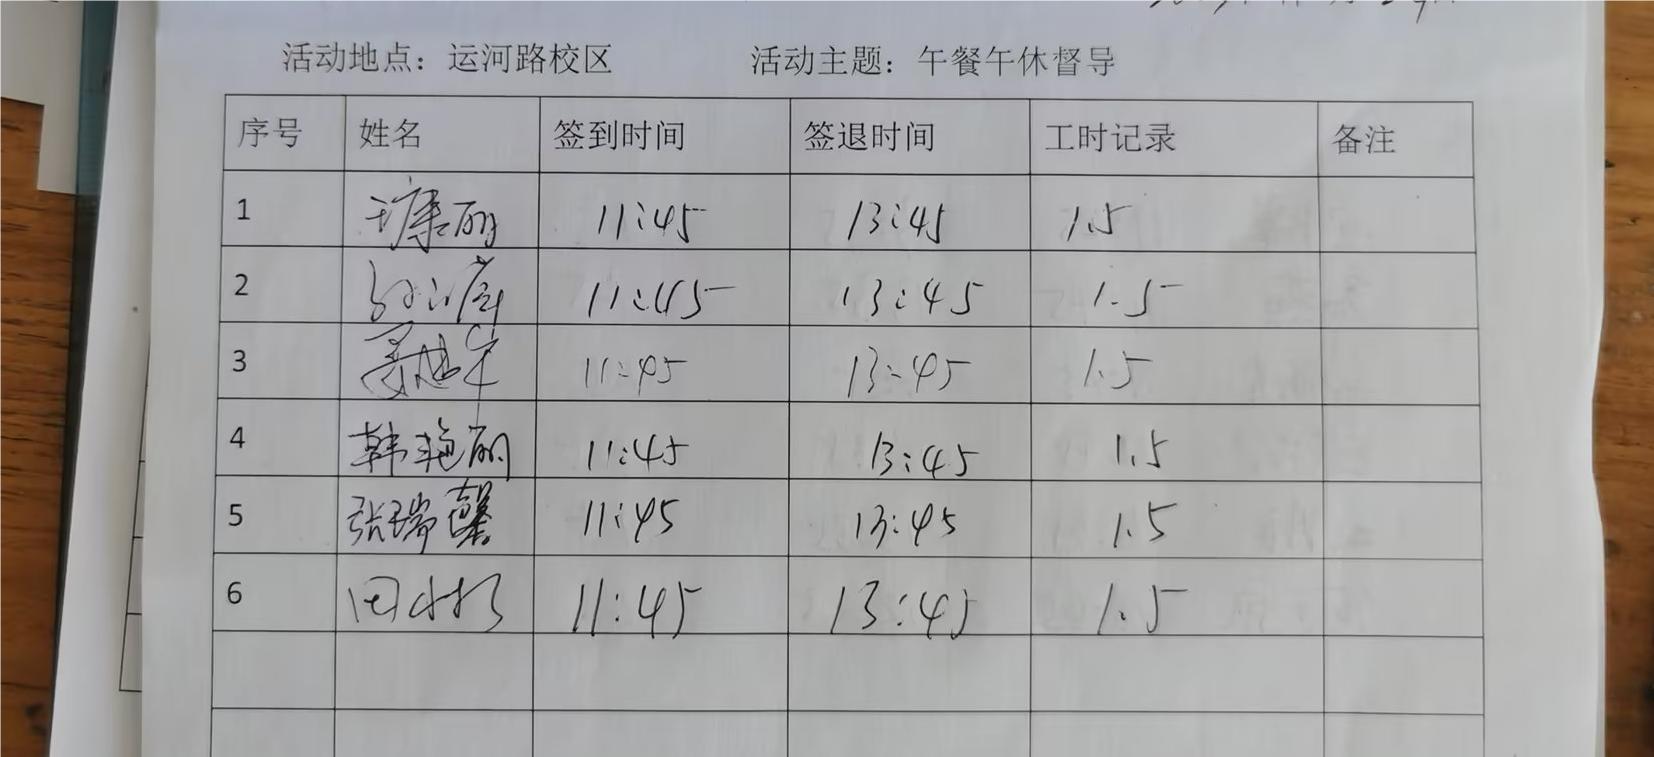 活动地点：运河路校区 活动主题：午餐午休督导
序号 姓名 签到时间 签退时间 工时记录 备注
1 王康丽 11:45 13:45 1.5
2 11:45 13:45 1.5
3 11:45 13:45 1.5
4 韩艳丽 11:45 13:45 1.5
5 张瑞馨 11:45 13:45 1.5
6 田 11:45 13:45 1.5